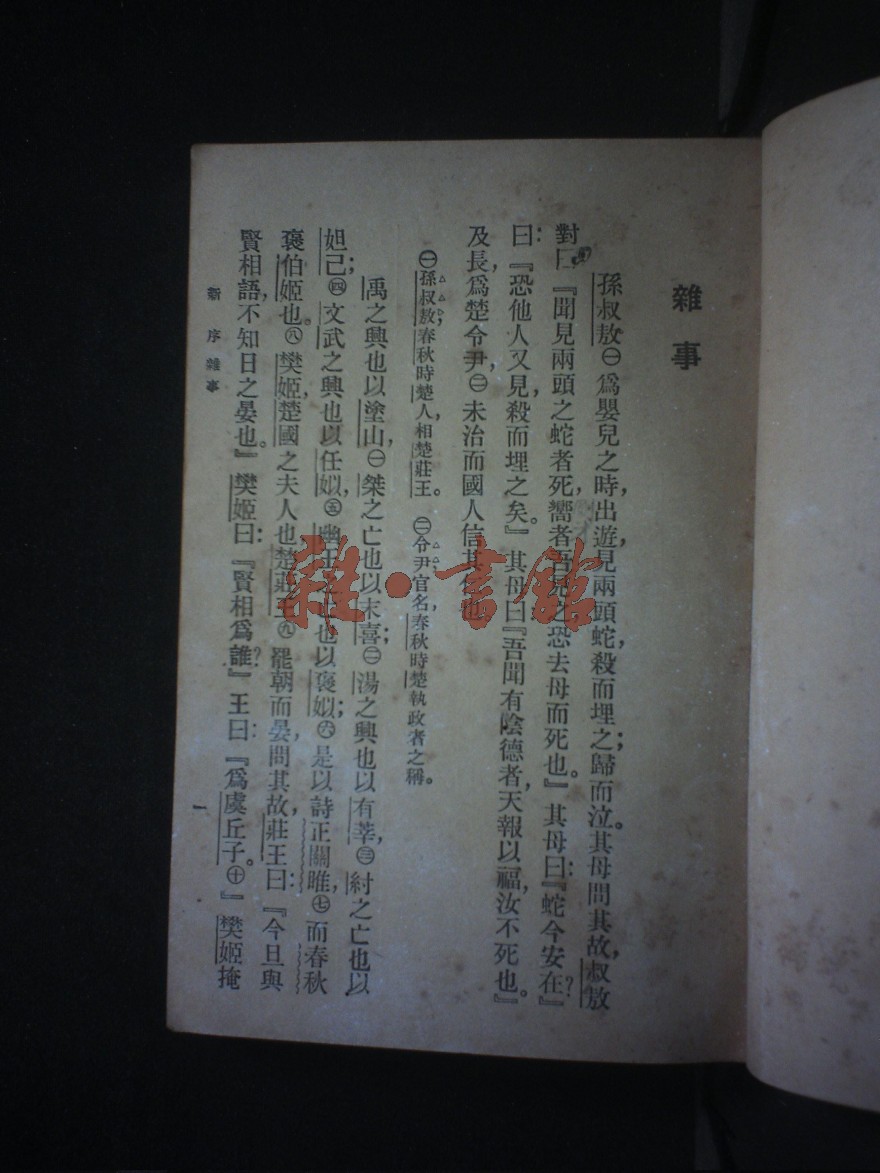 雜事
孫叔敖㊀爲嬰兒之時，出遊，見兩頭蛇，殺而埋之；歸而泣。其母問其故，叔敖
對曰：『聞見兩頭之蛇者死，嚮者吾見之，恐去母而死也。』其母曰：『蛇今安在？』
曰：『恐他人又見，殺而埋之矣。』其母曰：『吾聞有陰德者，天報以福，汝不死也。』
及長，爲楚令尹，㊁未治而國人信其仁也。
㊀孫叔敖，春秋時楚人，相楚莊王。　㊁令尹，官名，春秋時楚執政者之稱。
禹之興也以塗山，㊀桀之亡也以末喜；㊁湯之興也以有莘，㊂紂之亡也以
妲己；㊃文武之興也以任姒，㊄幽王之亡也以褒姒；㊅是以詩正關雎，㊆而春秋
褒伯姬也。㊇樊姬，楚國之夫人也，楚莊王㊈罷朝而晏，問其故，莊王曰：『今旦與
賢相語，不知日之晏也。』樊姬曰：『賢相爲誰？』王曰：『爲虞丘子。㊉』樊姬掩
新序 雜事
一
雜·書館